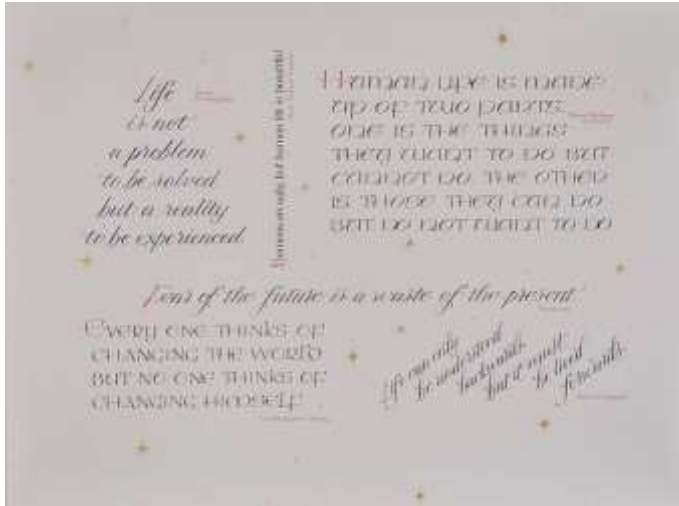 Life
is not
a problem
to be solved
but a reality
to be experienced
Human life is made
up of two parts
one is the things
they want to do but
cannot do the other
is those they can do
but do not want to do
Humans are ugly, but human life is beautiful
Fear of the future is a waste of the present
Every one thinks of
changing the world
but no one thinks of
changing himself
Life can only
be understood
backwards
but it must
be lived
forwards